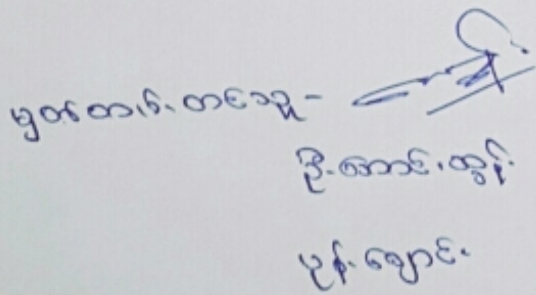 မှတ်တမ်းတင်သူ -
ဦးအောင်ထွန်း
မုန်းချောင်း